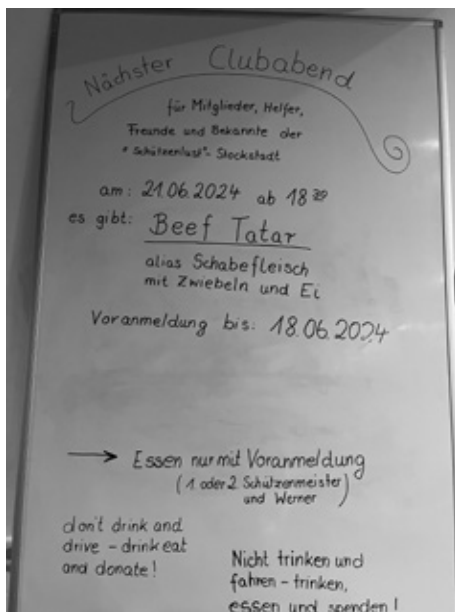 Nächster Clubabend
für Mitglieder, Helfer,
Freunde und Bekannte der
"Schützenlust"- Stockstadt
am: 21.06.2024 ab 18³⁰
es gibt: Beef Tatar
alias Schabefleisch
mit Zwiebeln und Ei
Voranmeldung bis: 18.06.2024
→ Essen nur mit Voranmeldung
(1 oder 2 Schützenmeister)
und Werner
don't drink and
drive - drink eat
and donate!
Nicht trinken und
fahren - trinken,
essen und spenden!